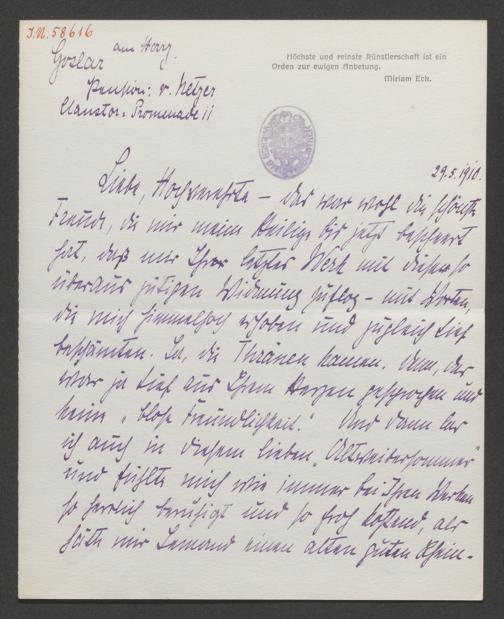 J.N. 58616
Goslar am Harz.
Pension: v. Metzer
Claustor-Promenade 11
Höchste und reinste Künstlerschaft ist ein
Orden zur ewigen Anbetung.
Miriam Eck.
29.5.1910.
Liebe, Hochverehrte – das war wohl die schönste
Freude, die mir meine Heilige bis jetzt beschert
hat, daß mir Ihr letztes Werk mit dieser so
überaus gütigen Widmung zuflog – mit Worten,
die mich himmelhoch erhoben und zugleich tief
beschämten. Ja, die Thränen kamen. Denn, das
war ja tief aus Ihrem Herzen gesprochen und
keine „bloße Freundlichkeit. Und dann las
ich auch in diesem lieben „Altweibersommer"
und fühlte mich wie immer bei Ihren Werken
so herrlich beruhigt und so froh kostend, als
hätte mir Jemand einen alten guten Rhein-